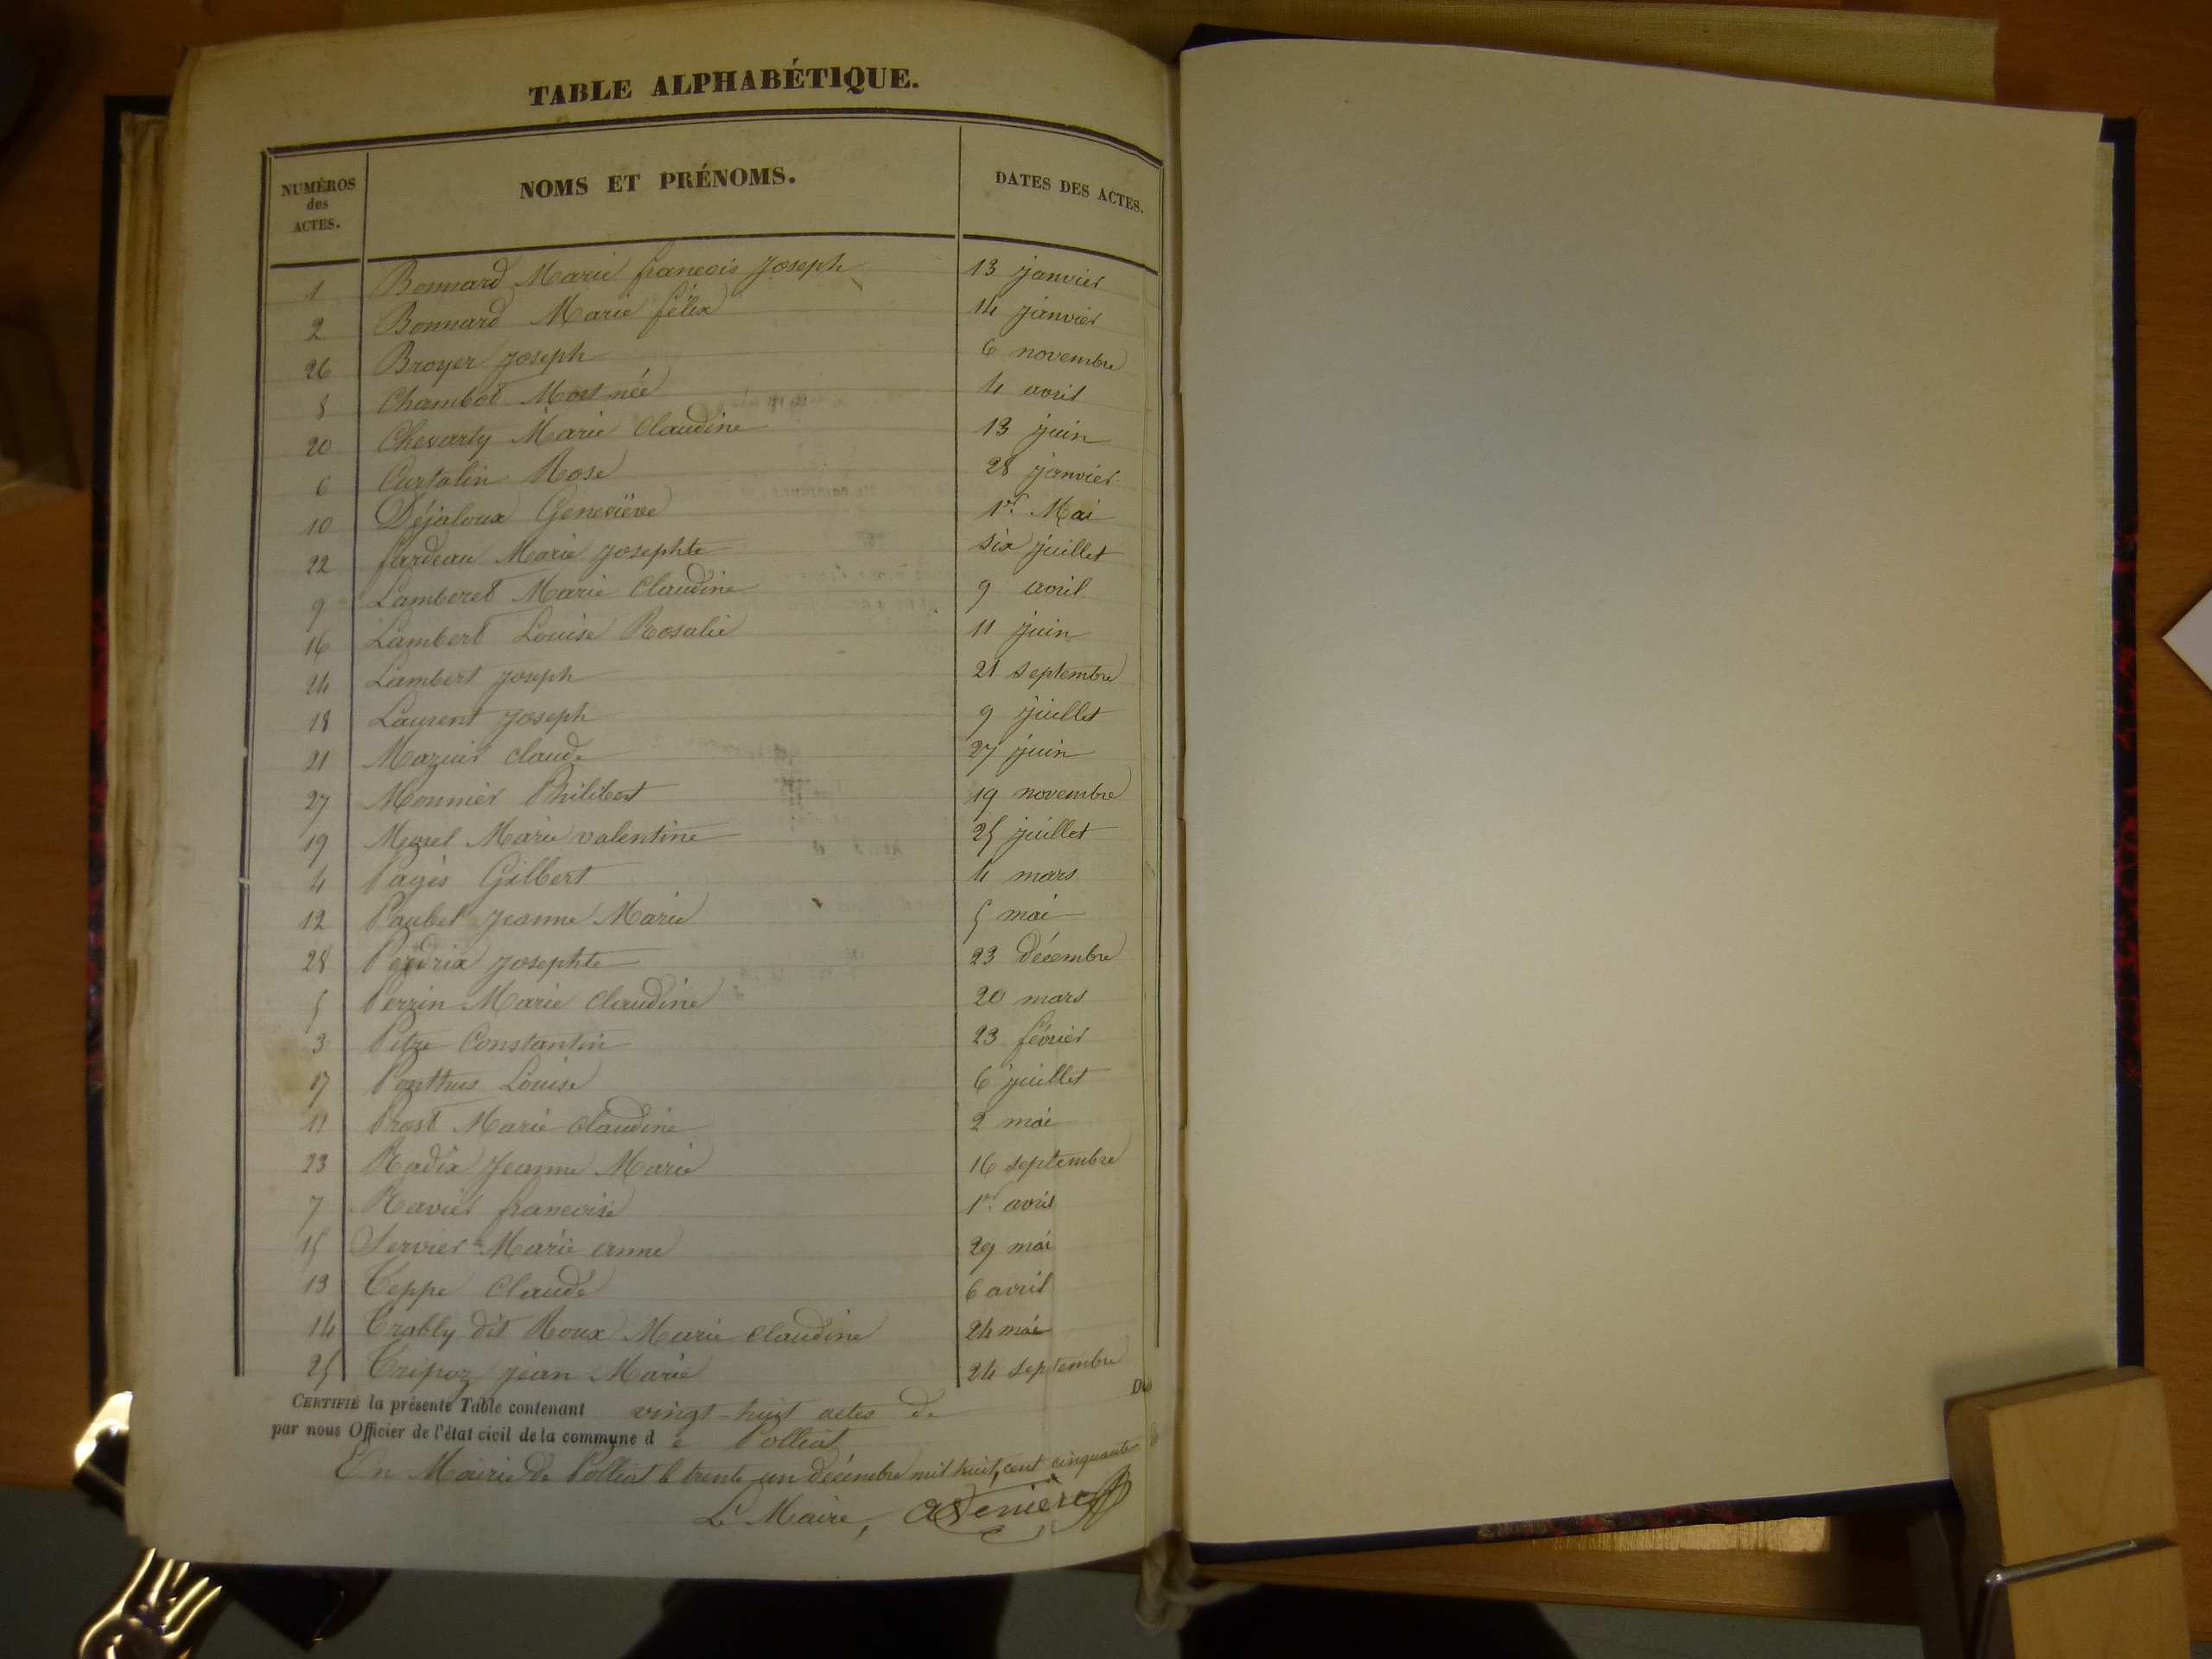 TABLE ALPHABÉTIQUE.
NUMÉROS des ACTES. NOMS ET PRÉNOMS. DATES DES ACTES.
1 Bonnard Marie françois Joseph 13 janvier
2 Bonnard Marie félix 14 janvier
26 Broyer Joseph 6 novembre
8 Chambot Mort née 4 avril
20 Chevarty Marie Claudine 13 juin
6 Curtalin Rose 28 janvier
10 Déjaloux Geneviève 1er Mai
22 fardeau Marie Josephte six juillet
9 Lamberet Marie Claudine 9 avril
16 Lambert Louise Rosalie 11 juin
24 Lambert Joseph 21 septembre
18 Laurent Joseph 9 juillet
21 Mazuir Claude 27 juin
27 Monnier Philibert 19 novembre
19 Morel Marie valentine 25 juillet
4 Pagès Gilbert 4 mars
12 Paubel Jeanne Marie 5 mai
28 Perdrix Josephte 23 décembre
5 Perrin Marie Claudine 20 mars
3 Pitre Constantin 23 février
17 Ponthus Louise 6 juillet
11 Prost Marie Claudine 2 mai
23 Radix Jeanne Marie 16 septembre
7 Ravier françoise 1er avril
15 Servier Marie anne 29 mai
13 Teppe Claude 6 avril
14 Trably dit Roux Marie Claudine 24 mai
25 Tripoz jean Marie 24 septembre
CERTIFIÉ la présente Table contenant vingt-huit actes de Dé
par nous Officier de l'état civil de la commune d e Polliat
En Mairie de Polliat le trente un décembre mil huit cent cinquante
Le Maire,